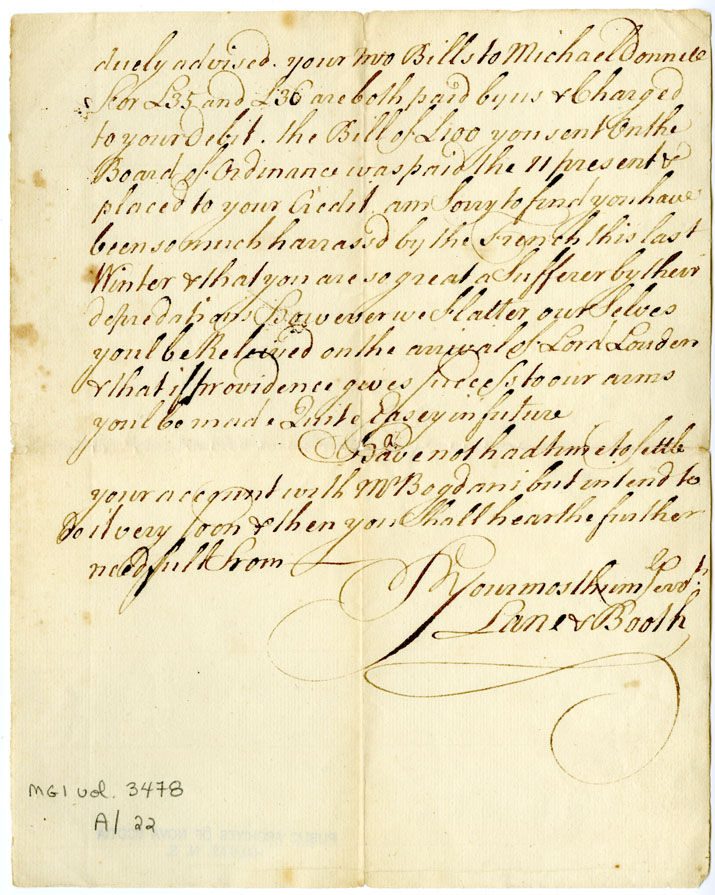 duely advised. your two Bills to Michael Donnele
for £35 and £36 are both paid by us & Charged
to your Debit. the Bill of £100 you sent on the
Board of Ordinance was paid the 11 present &
placed to your Credit am Sorry to find you have
been so much harrass'd by the French this last
Winter & that you are so great a Sufferer by their
depredations However we flatter our Selves
youl be Releived on the arrival of Lord Louden
& that if providence gives success to our arms
youl be made Quite Easey in future
Have not had time to settle
your account with Mr Bogdani but intend to
do it very soon & then you shall hear the further
needfull from
Your most hum Servt:
Lane & Booth
MG1 vol. 3478
A/ 22